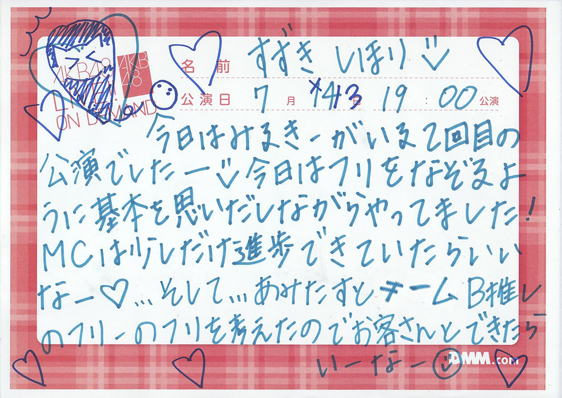 AKB48
LIVE!!
ON DEMAND
AKB
48
名前 すずき しほり♡
公演日 7月 13日 19:00公演
今日はみるきーがいる2回目の
公演でしたー♡今日はフリをなぞるよ
うに基本を思いだしながらやってました!
MCは少しだけ進歩できていたらいい
なー♡…そして…あみたすとチームB推し
のフリーのフリを考えたのでお客さんとできたら
いーなー☺
DMM.com